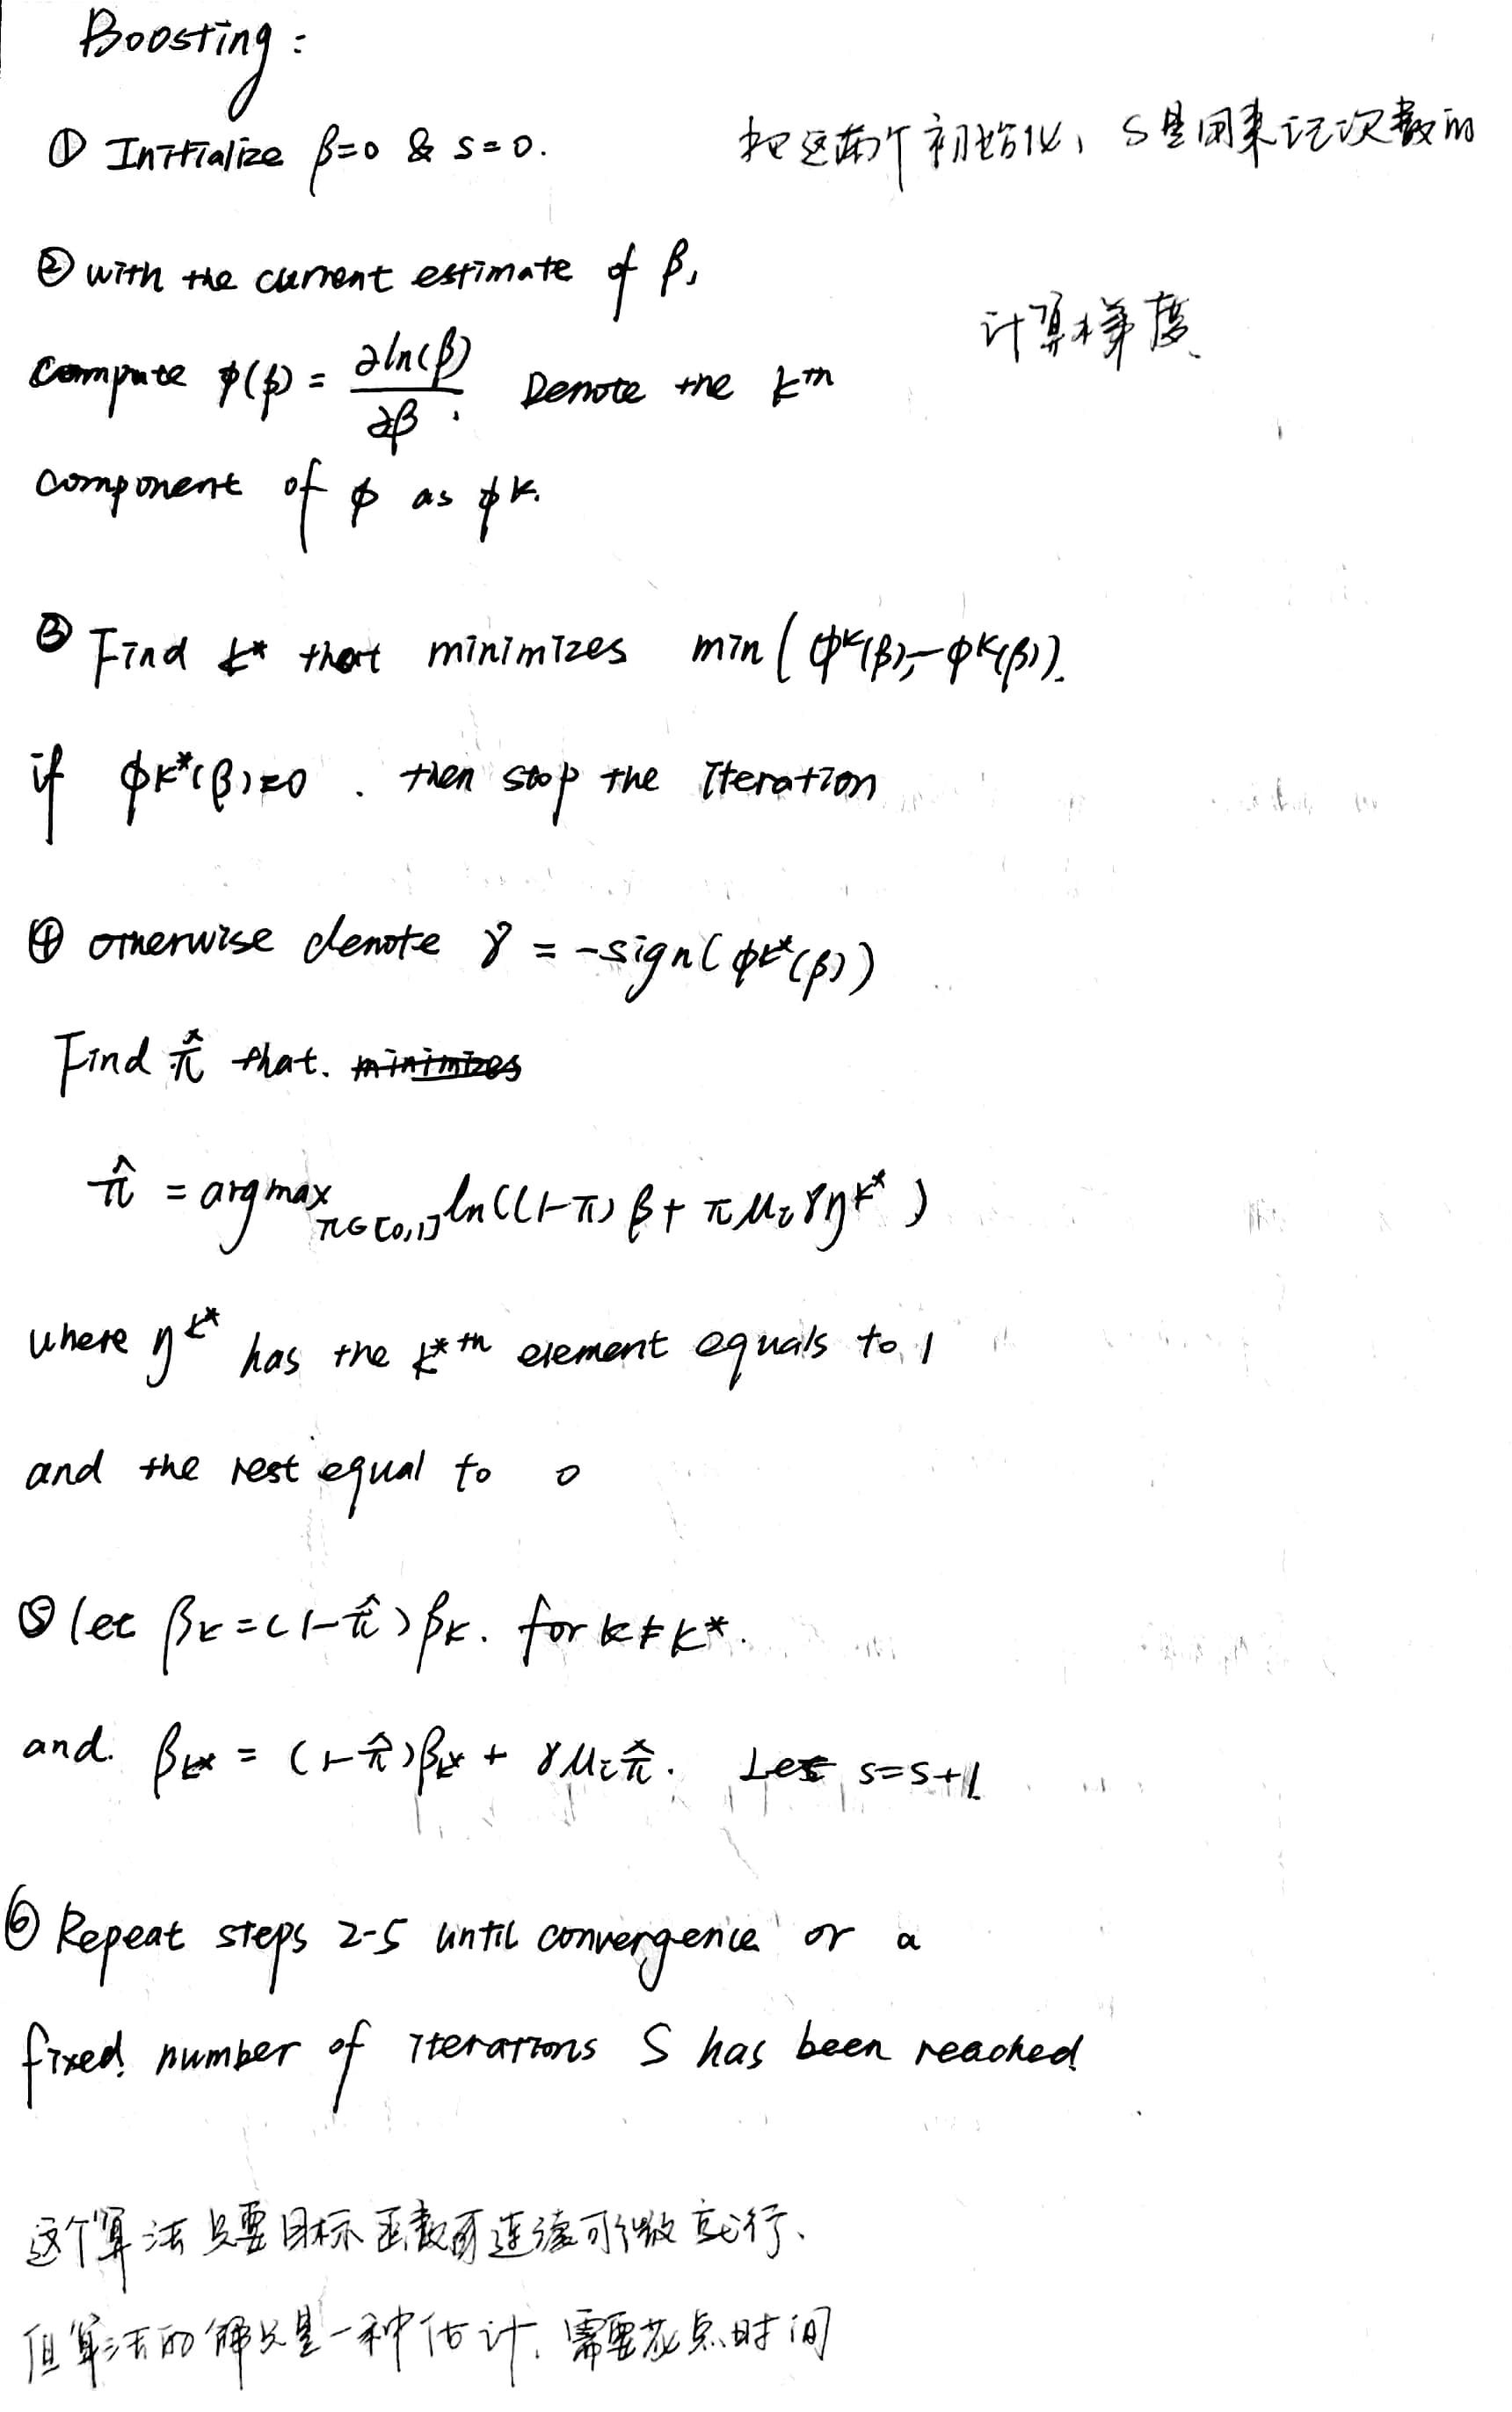 Boosting:
① Initialize β=0 & s=0. 把这两个初始化, S是用来记次数的
② with the current estimate of β,
计算梯度
compute φ(β) = ∂ln(β)/∂β. Denote the kth
component of φ as φk.
③ Find k* that minimizes min(φk(β),-φk(β)).
if φk*(β)=0. then stop the iteration
④ otherwise denote γ = -sign(φk*(β))
Find π̂ that. minimizes
π̂ = argmax π∈[0,1] ln((1-π)β+πμiγηk*)
where ηk* has the k*th element equals to 1
and the rest equal to 0
⑤ let βk=(1-π̂)βk. for k≠k*.
and. βk* = (1-π̂)βk* + γμiπ̂. Let s=s+1
⑥ Repeat steps 2-5 until convergence or a
fixed number of iterations S has been reached
这个算法只要目标函数可连续可微就行、
但算法的解只是一种估计, 需要花点时间